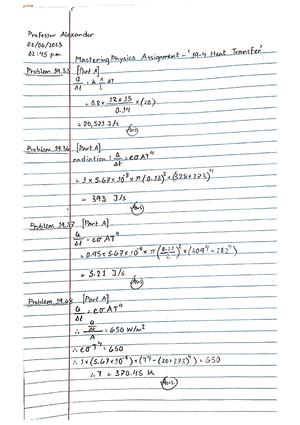 Professor Alexander
02/06/2023
02:45 p.m
MasteringPhysics Assignment - '19.4 Heat Transfer'
Problem 19.33 [Part A]
Q/Δt = k A/L ΔT
= 0.8 × 12 × 15 / 0.14 × (20)
= 20,571 J/s
Ans
Problem 19.36 [Part A]
radiation: Q/Δt = eσAT⁴
= 1 × 5.67 × 10⁻⁸ × π (0.18)² × (228+273)⁴
= 393 J/s
Ans
Problem 19.37 [Part A]
Q/Δt = eσAT⁴
= 0.95 × 5.67 × 10⁻⁸ × π × (0.22/2)² × (309⁴ - 282⁴)
= 5.21 J/s
Ans
Problem 19.68 [Part A]
Q/Δt = eσAT⁴
∴ Q/Δt/A = 650 W/m²
∴ eσT⁴ = 650
∴ 1 × (5.67 × 10⁻⁸) × (T⁴ - (20+273)⁴) = 650
∴ T = 370.45 K
Ans